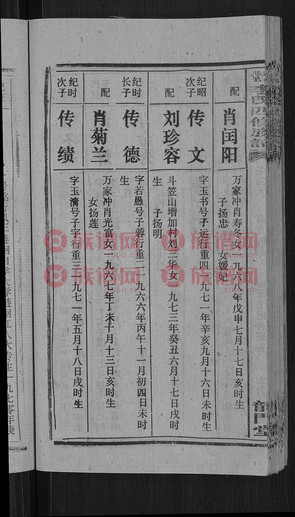 配
肖闰阳
万家冲肖寿冬女一九六八年戊申七月十七日亥时生
子扬忠 女媛妃
纪昭次子
传文
字玉书号子运行重四一九七一年辛亥九月十六日未时生
配
刘珍容
斗笠山增加村刘三华女一九七三年癸丑六月十七日戌时生
纪时长子
传德
字若愚号子蓉行重二一九六六年丙午十一月初四日未时生
配
肖菊兰
万家冲肖光富女一九六七年丁未十月十三日亥时生
女扬莲
纪时次子
传绩
字玉清号子字行重三一九七一年五月十八日戌时生
龍門堂
族谱网